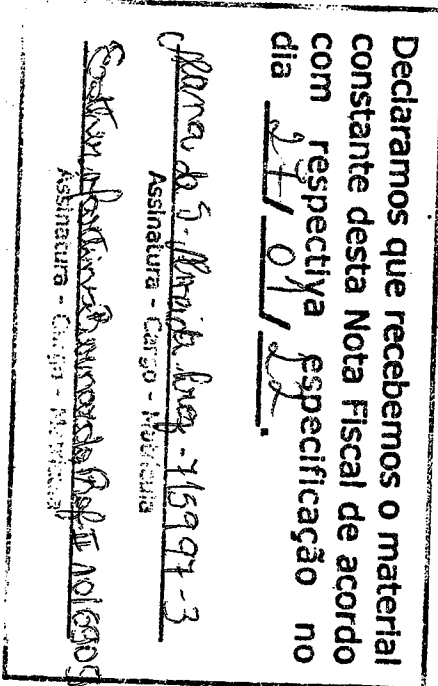 Declaramos que recebemos o material
constante desta Nota Fiscal de acordo
com respectiva especificação no
dia 27/01/22.
Maria de S. Almeida - 715997-3
Assinatura - Cargo - Matrícula
Martins Prof II
Assinatura - Cargo - Matrícula